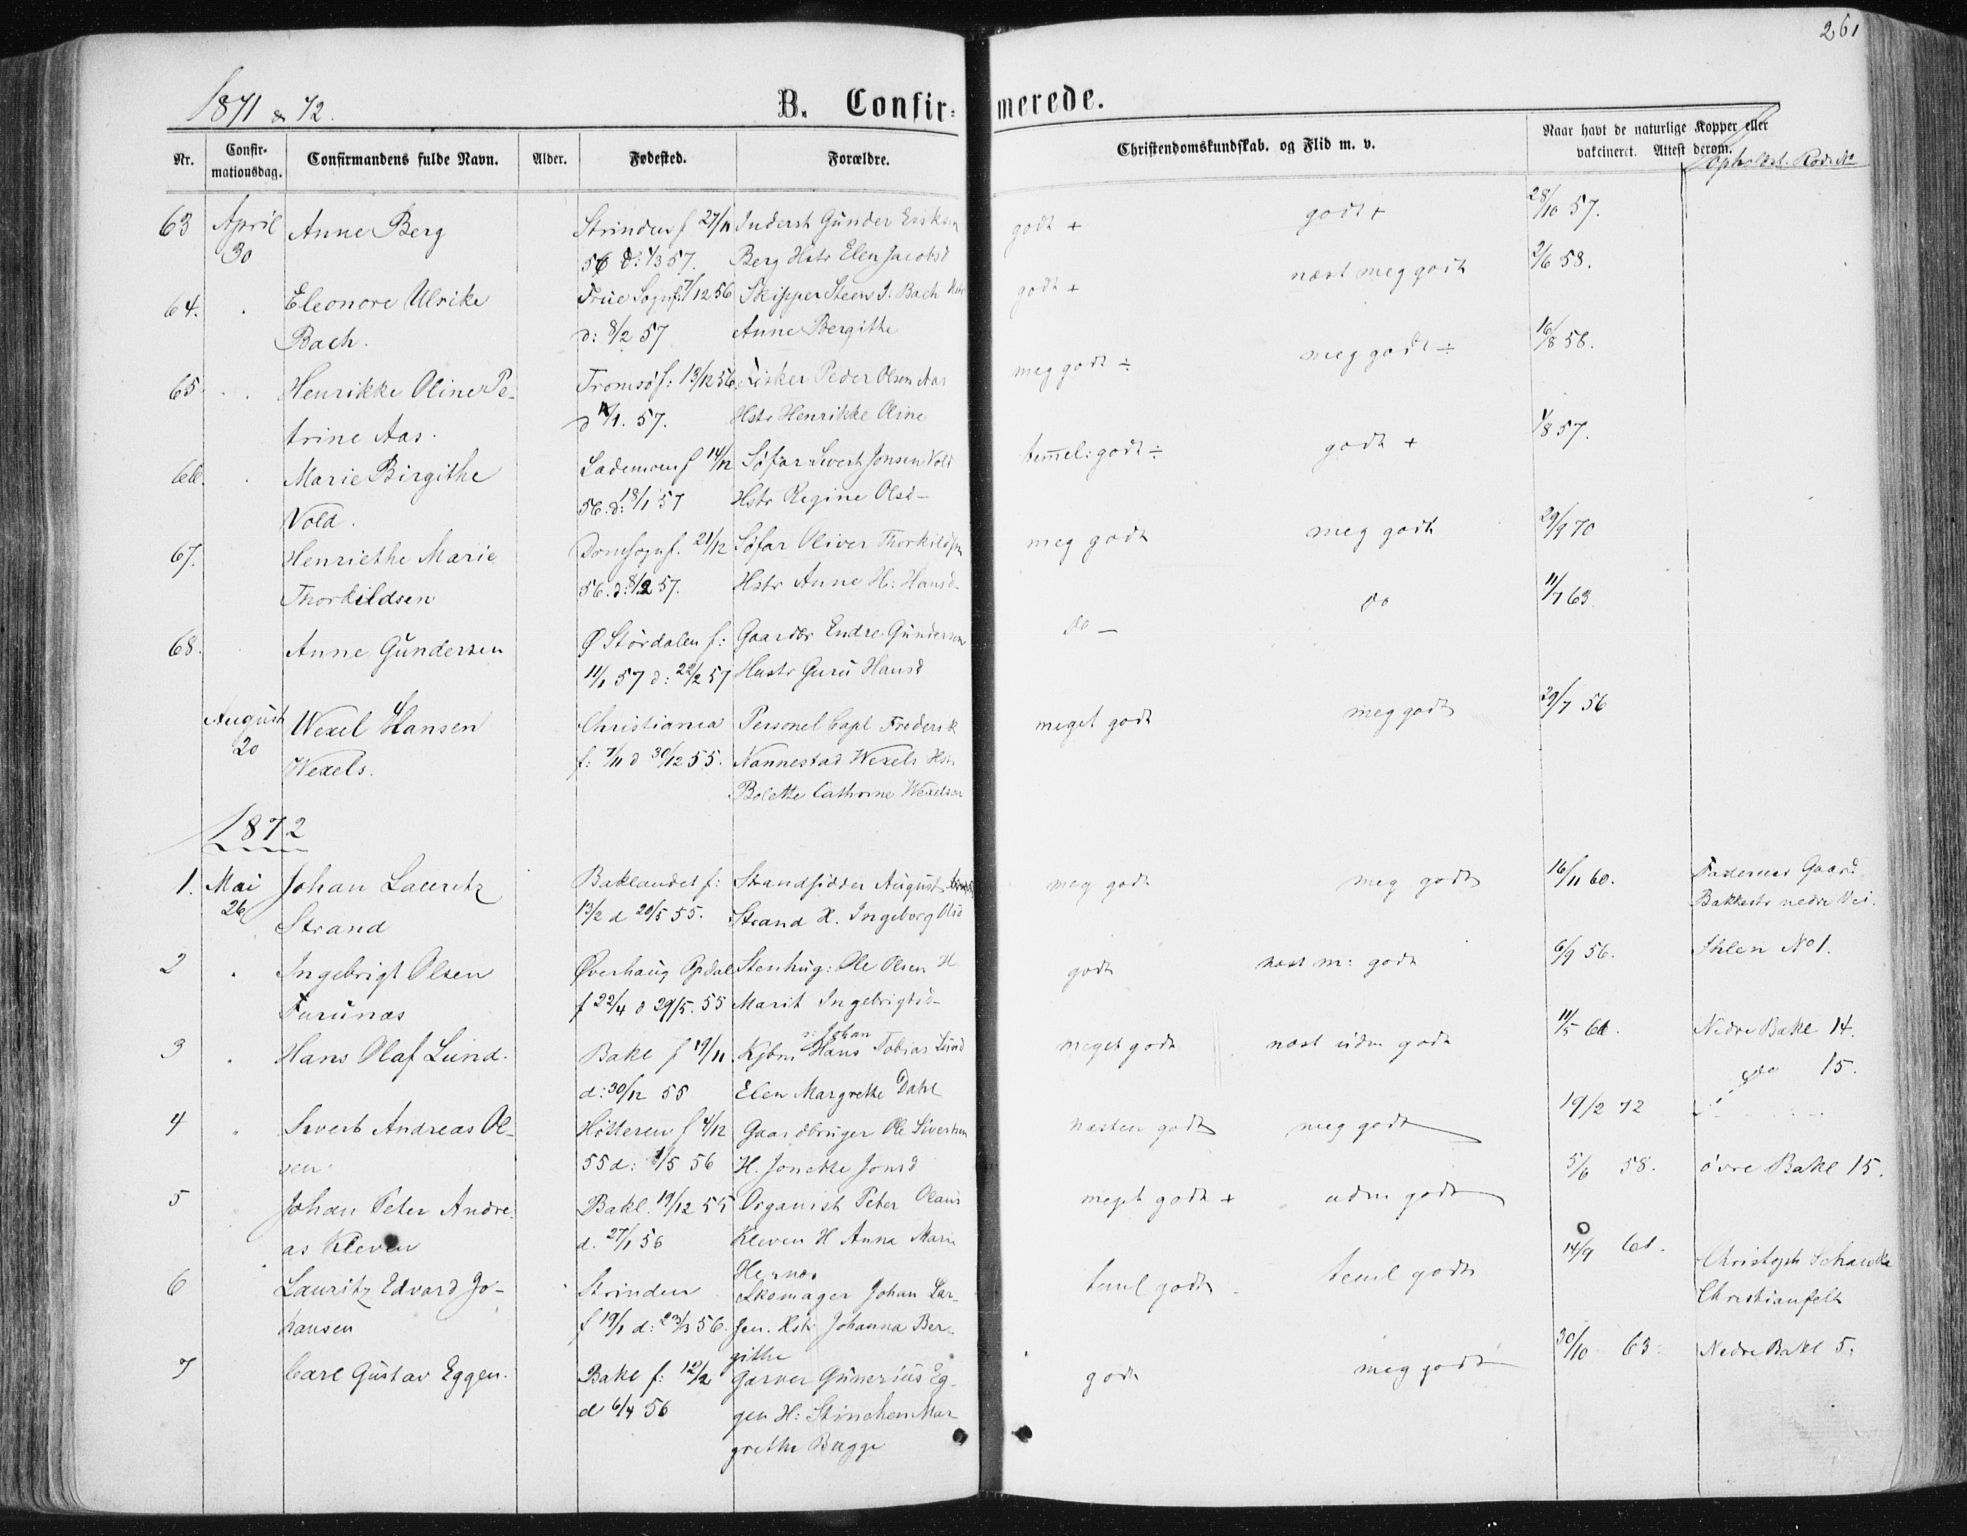 261
1871 & 72.
B. Confirmerede.
Nr.
Confirmationsdag.
Confirmandens fulde Navn.
Alder.
Fødested.
Forældre.
Christendomskundskab. og Flid m. v.
Naar havt de naturlige Kopper eller
vakcineret. Attest derom.
63 April Anne Berg Strinden f 27/11 Inderst Gunder Eriksen godt + godt + 28/10 57.
30 56 d: 1/3 57. Berg Hstr Elen Jacobsd
64. Eleonore Ulrike Frue Sogn f. 7/12 56 Skipper Steen J. Bach Hstr godt + næst meg godt 2/6 58.
Bach. d: 8/2 57 Anne Bergithe
65. Henrikke Oline Pe- Tromsö f: 13/12 56 Fisker Peder Olsen Aas meg godt ÷ meg godt ÷ 16/8 58.
trine Aas. 57. Hstr Henrikke Oline
66. Marie Birgithe Lademoen f 14/12 Søfar Sivert Jonsen Vold temel: godt ÷ godt + 1/8 57.
Vold. 56. d: 18/1 57 Hstr Regine Olsd-
67. Henriethe Marie Domsogn f. 21/12 Søfar Oliver Thorkildsen meg godt meg godt 29/9 70
Thorkildsen 56. d: 8/2 57. Hstr Anne H: Hansd-
68. Anne Gundersen Ø Størdalen f: Gaardbr Endre Gundersen do - do 11/7 63
11/1 57 d: 22/2 57 Hustr Guru Hansd
August Wexel Hansen Christiania Personel Capl Frederik meget godt meg godt 29/7 56
20 Wexels. f: 7/11 d 30/12 55. Nannestad Wexels Hstr
Bolette Cathrine Wexelsen
1872
1. Mai Johan Lauritz Baklandet f: Strandsidder August meg godt meg godt 16/11 60. Faderens Gaard
26 Strand 13/2 d 20/5 55. Strand H. Ingeborg Olsd Bakkestr nedre Vei.
2 Ingebrigt Olsen Øverhaug Opdal Stenhug: Ole Olsen H godt næst m: godt 6/9 56. Ihlen No 1.
Furunæs f 22/4 d 29/5. 55 Marit Ingebrigtsd-
3 Hans Olaf Lund. Bakl f 19/11 Kjbm Hans Johan Tobias Lund meget godt næst udm godt 11/5 61. Nedre Bakl 14.
d: 30/12 55 Elen Margrethe Dahl do 15.
4 Sivert Andreas Ol- Hitteren f 4/12 Gaardbruger Ole Sivertsen næsten godt meg godt 19/2 72
sen 55 d: 1/5 56 H. Jonetta Jonsd
5 Johan Peter Andre- Bakl. 19/12 55 Organist Peter Olaus meget godt + udm godt 5/6 58. övre Bakl 15.
as Kleven d. 27/1 56 Kleven H Anna Marie
Hernæs
6 Lauritz Edvard Jo- Strinden Skomager Johan Lar- teml godt teml godt 14/9 61. Christoph
hansen f 19/1 d: 23/3 56. sen. Hstr Johanna Ber- Christianfelt
githe
7 Carl Gustav Eggen. Bakl f: 12/2 Garver Gunerius Eg- godt meg godt 30/10 63. Nedre Bakl 5.
d 6/4 56 gen H: Stinchen Mar-
grethe Bagge